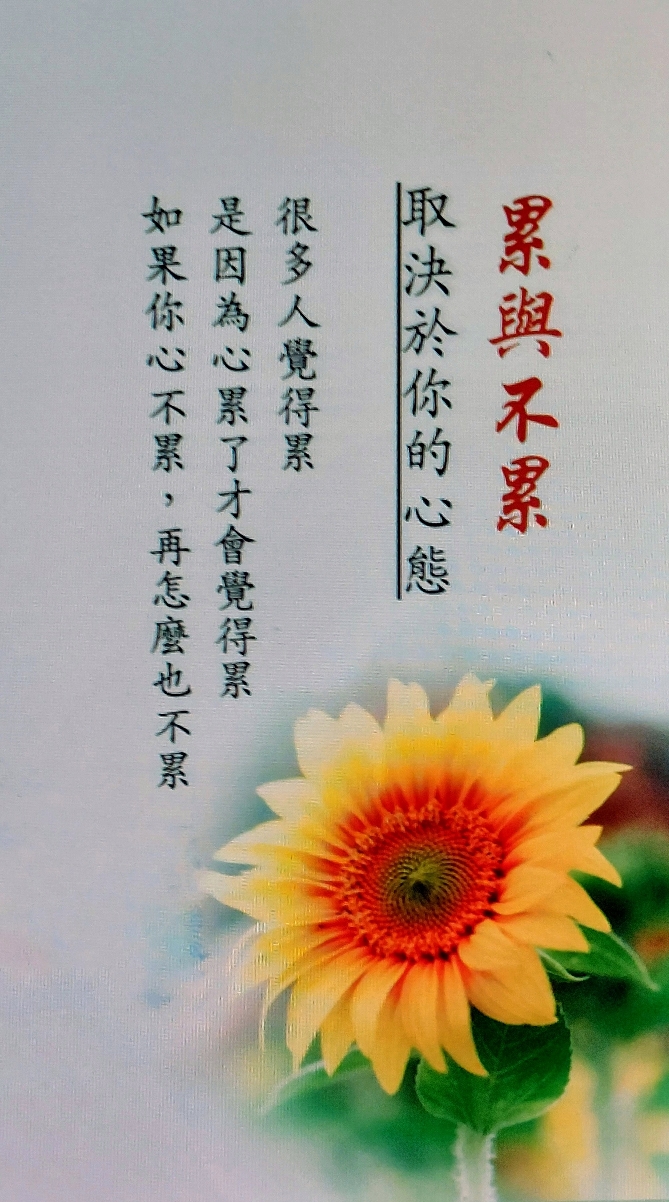 累與不累
取決於你的心態
很多人覺得累
是因為心累了才會覺得累
如果你心不累，再怎麼也不累